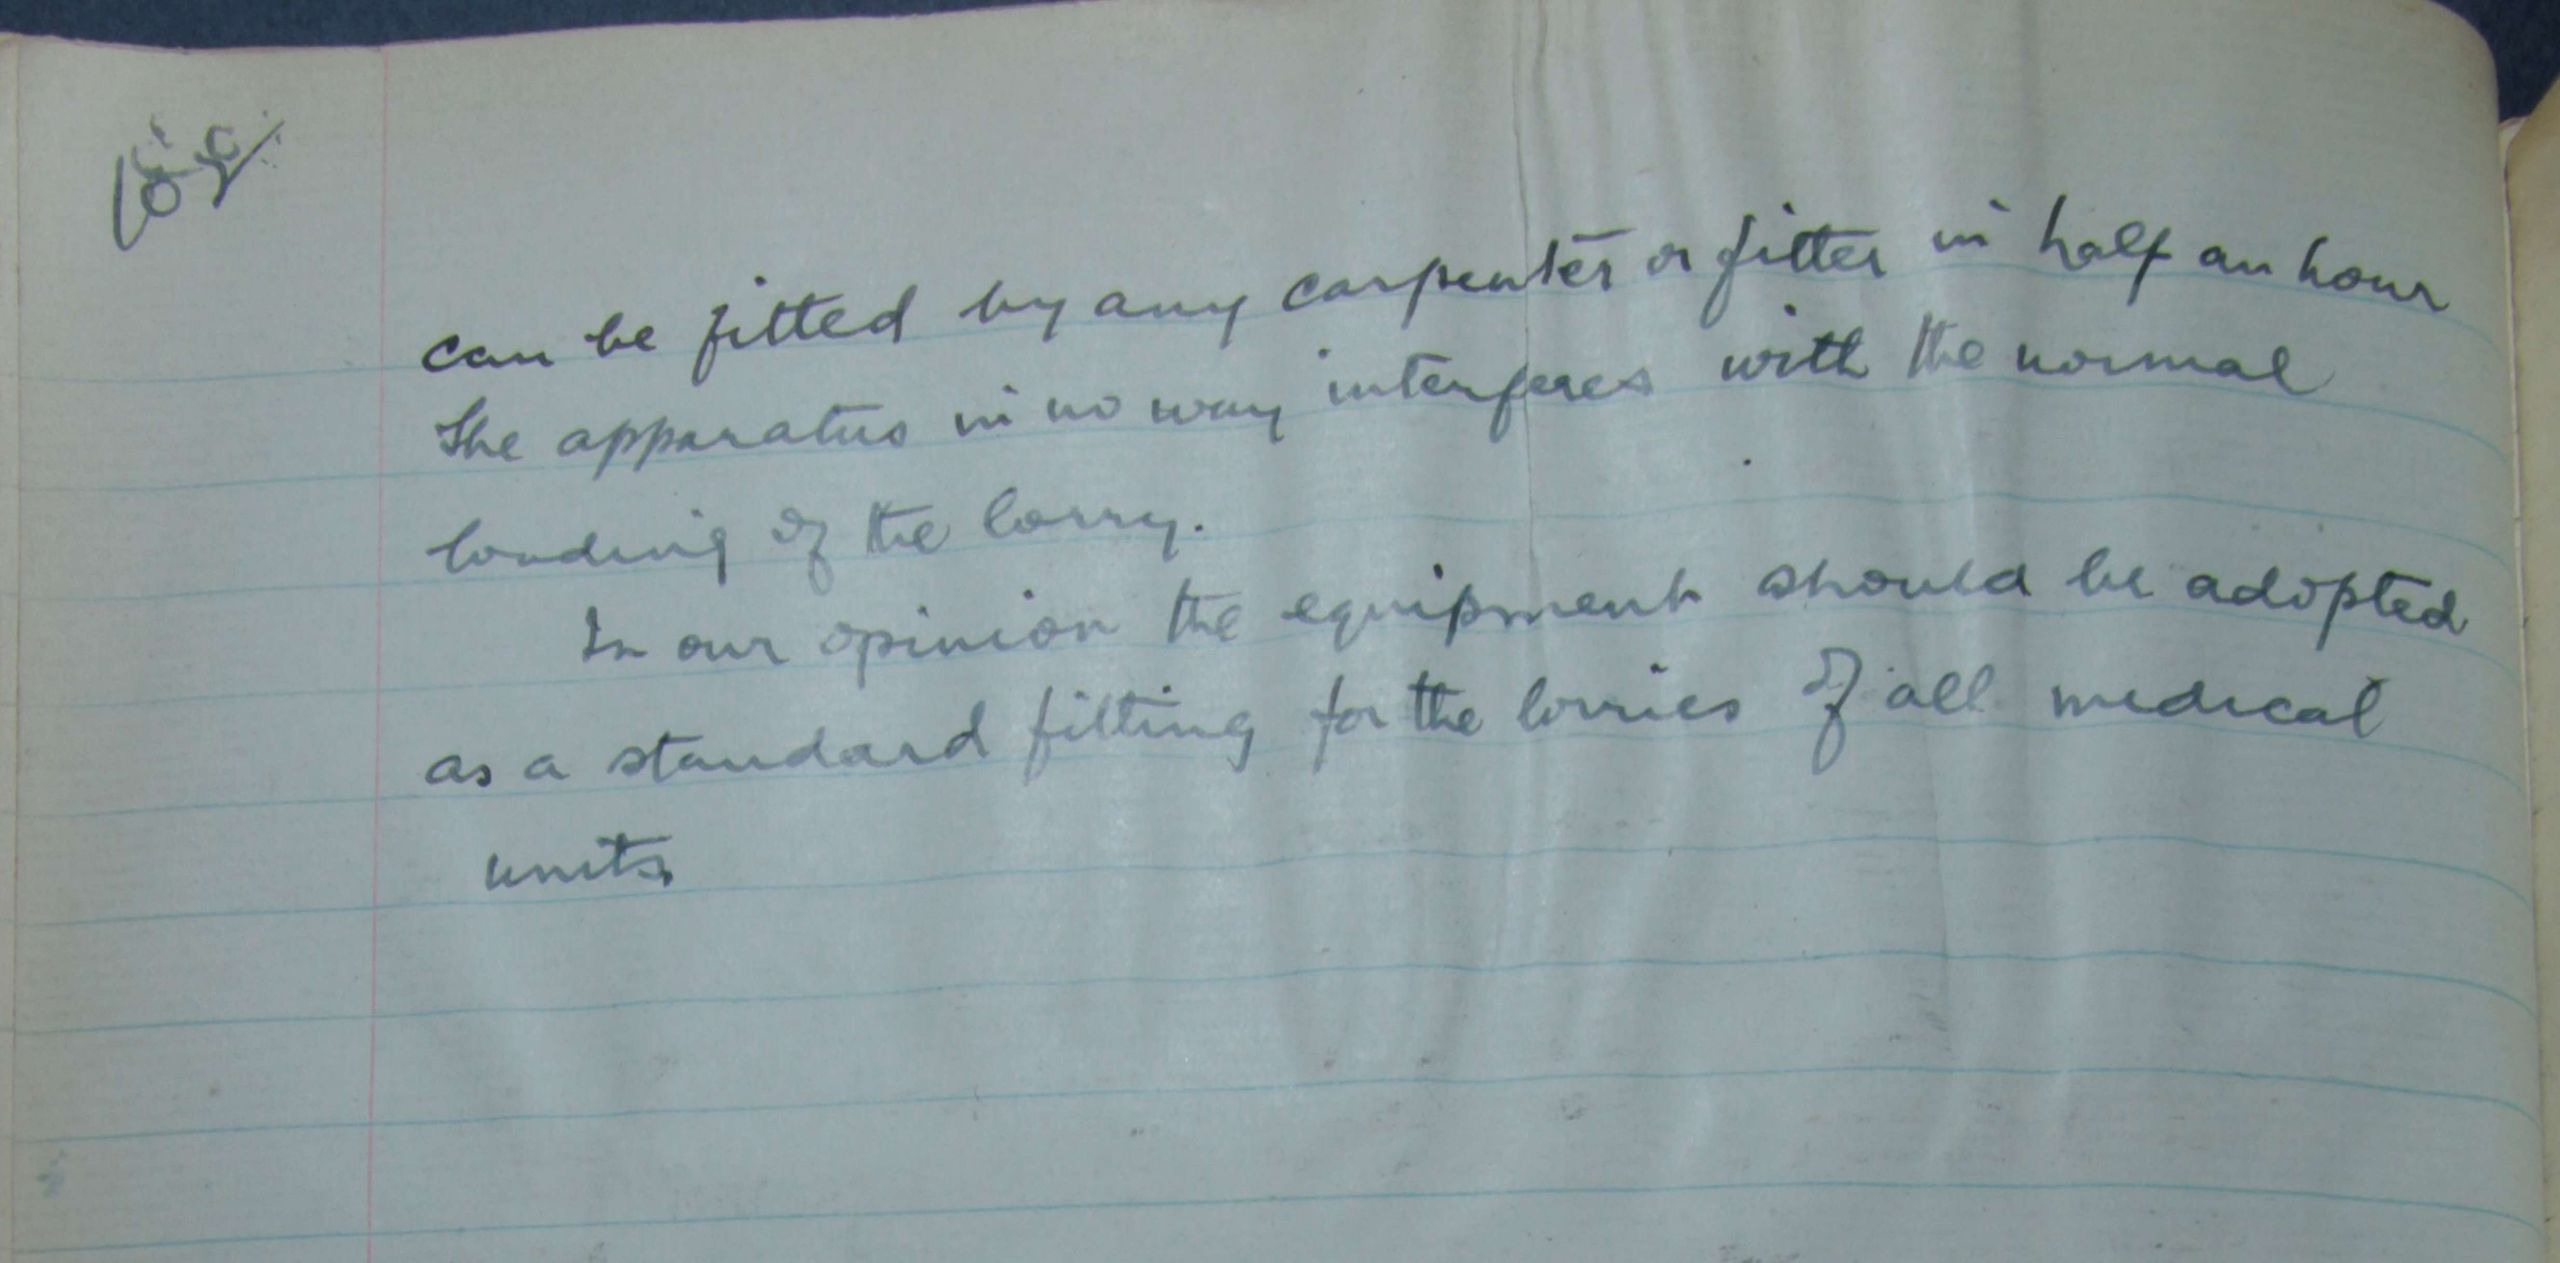 can be fitted by any carpenter or fitter in half an hour
The apparatus in no way interferes with the normal
loading of the lorry.
In our opinion the equipment should be adopted
as a standard fitting for the lorries of all medical
units.